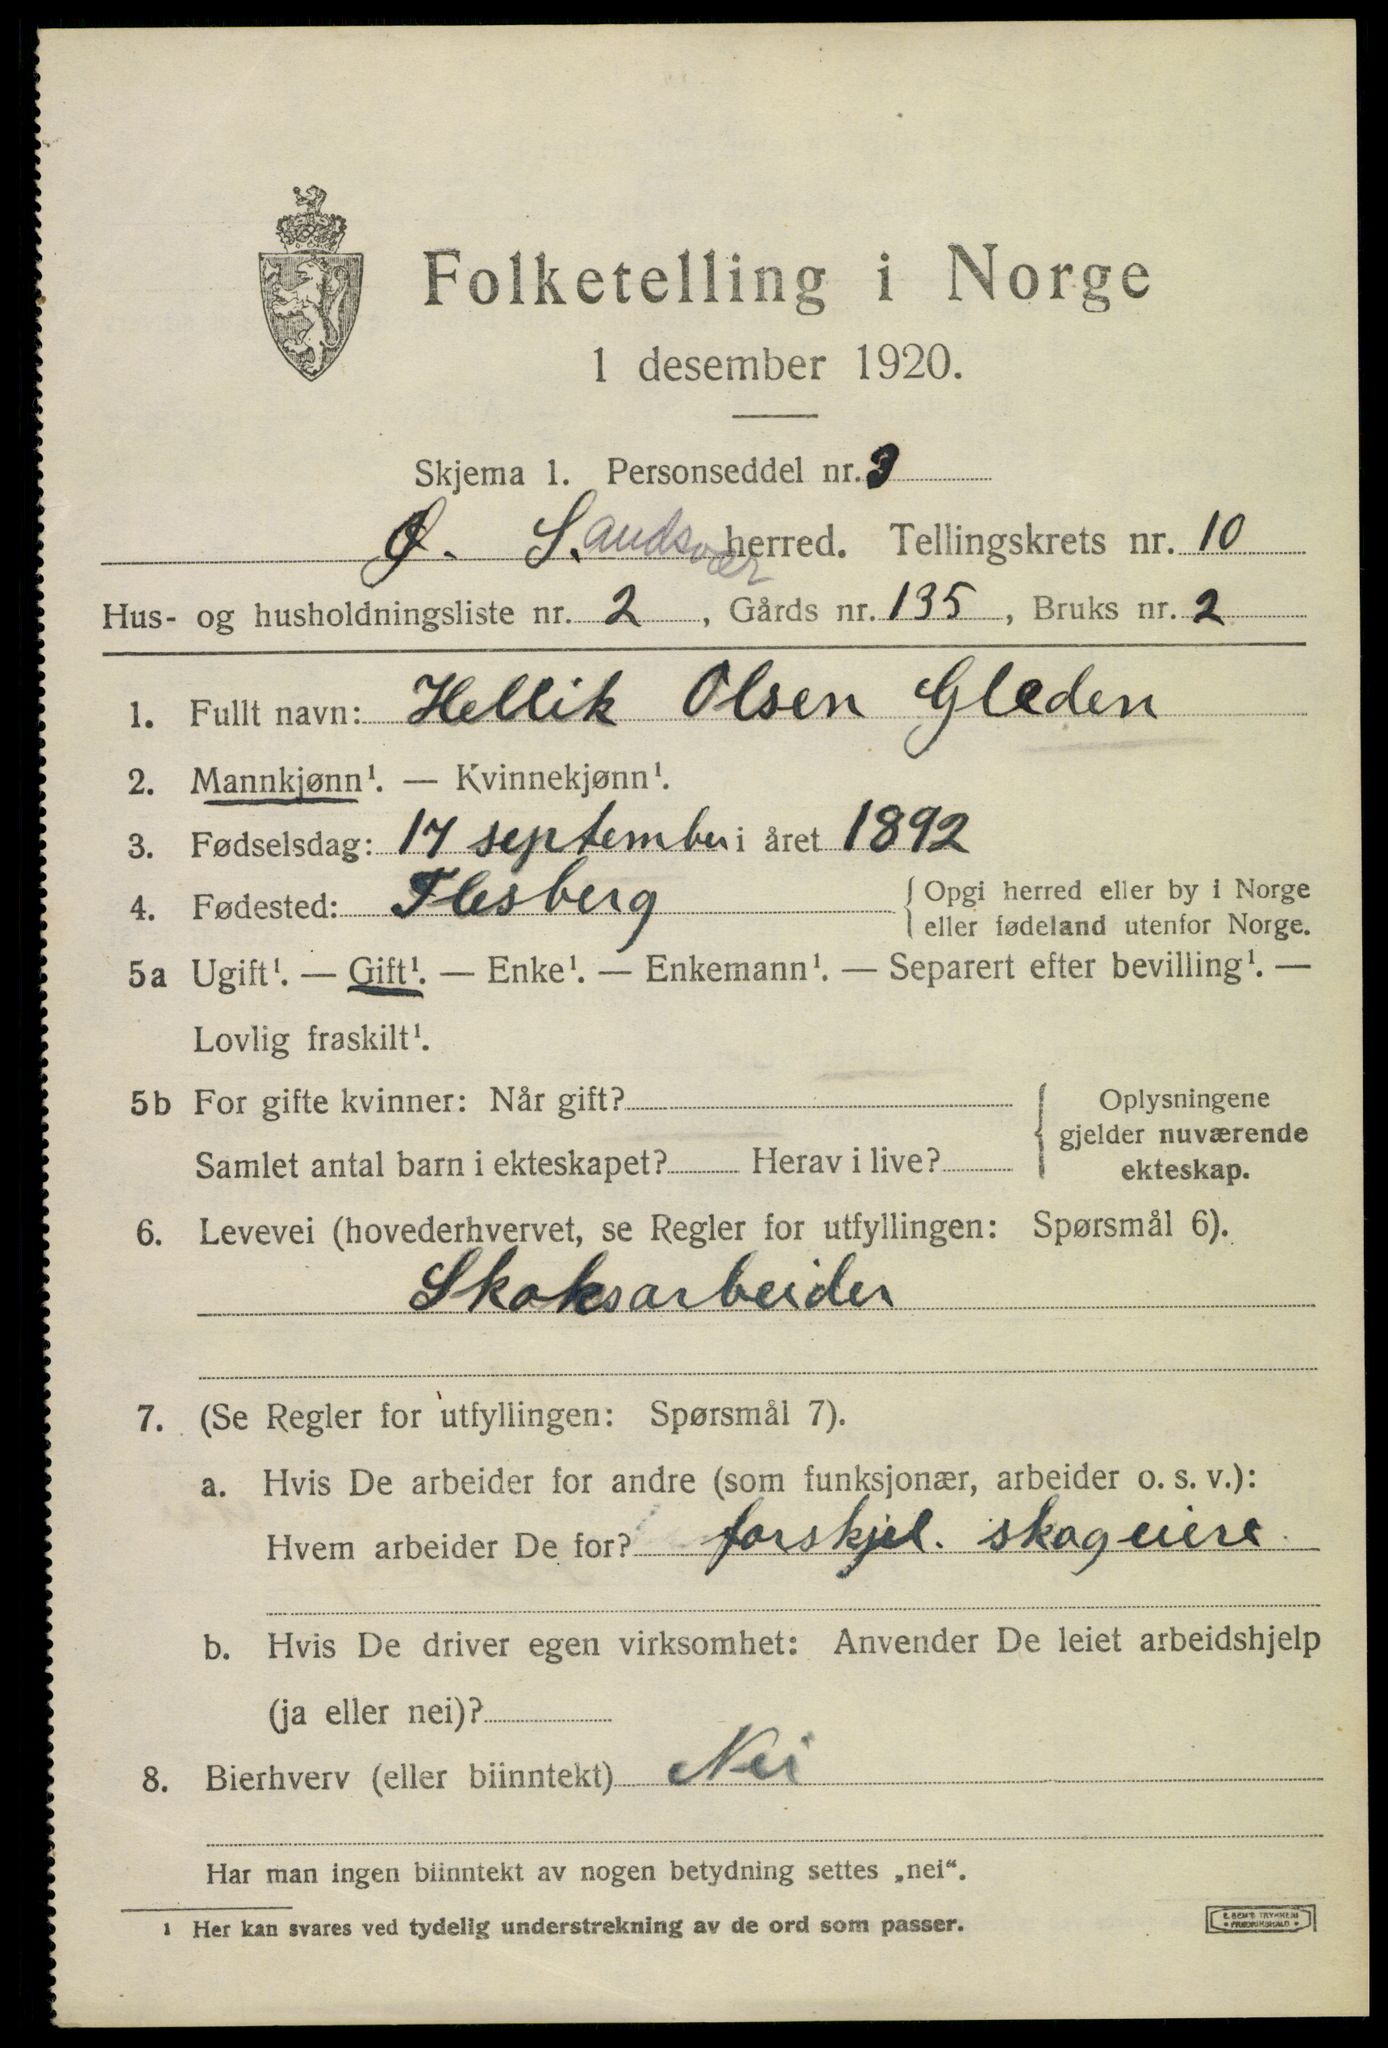 Folketelling i Norge
1 desember 1920.
Skjema 1. Personseddel nr. 3
Ø. S. andsvær herred. Tellingskrets nr. 10
Hus- og husholdningsliste nr. 2, Gårds nr. 135, Bruks nr. 2
1. Fullt navn: Hellik Olsen Gladen
2. Mannkjønn¹. — Kvinnekjønn¹.
3. Fødselsdag: 17 september i året 1892
4. Fødested: Flesberg { Opgi herred eller by i Norge
eller fødeland utenfor Norge.
5a Ugift¹. — Gift¹. — Enke¹. — Enkemann¹. — Separert efter bevilling¹. —
Lovlig fraskilt¹.
5b For gifte kvinner: Når gift?
Samlet antal barn i ekteskapet? Herav i live?
{ Oplysningene
gjelder nuværende
ekteskap.
6. Levevei (hovederhvervet, se Regler for utfyllingen: Spørsmål 6).
Skoksarbeider
7. (Se Regler for utfyllingen: Spørsmål 7).
a. Hvis De arbeider for andre (som funksjonær, arbeider o. s. v.):
Hvem arbeider De for? forskjel. skogeiere
b. Hvis De driver egen virksomhet: Anvender De leiet arbeidshjelp
(ja eller nei)?
8. Bierhverv (eller biinntekt) Nei
Har man ingen biinntekt av nogen betydning settes „nei“.
¹ Her kan svares ved tydelig understrekning av de ord som passer.